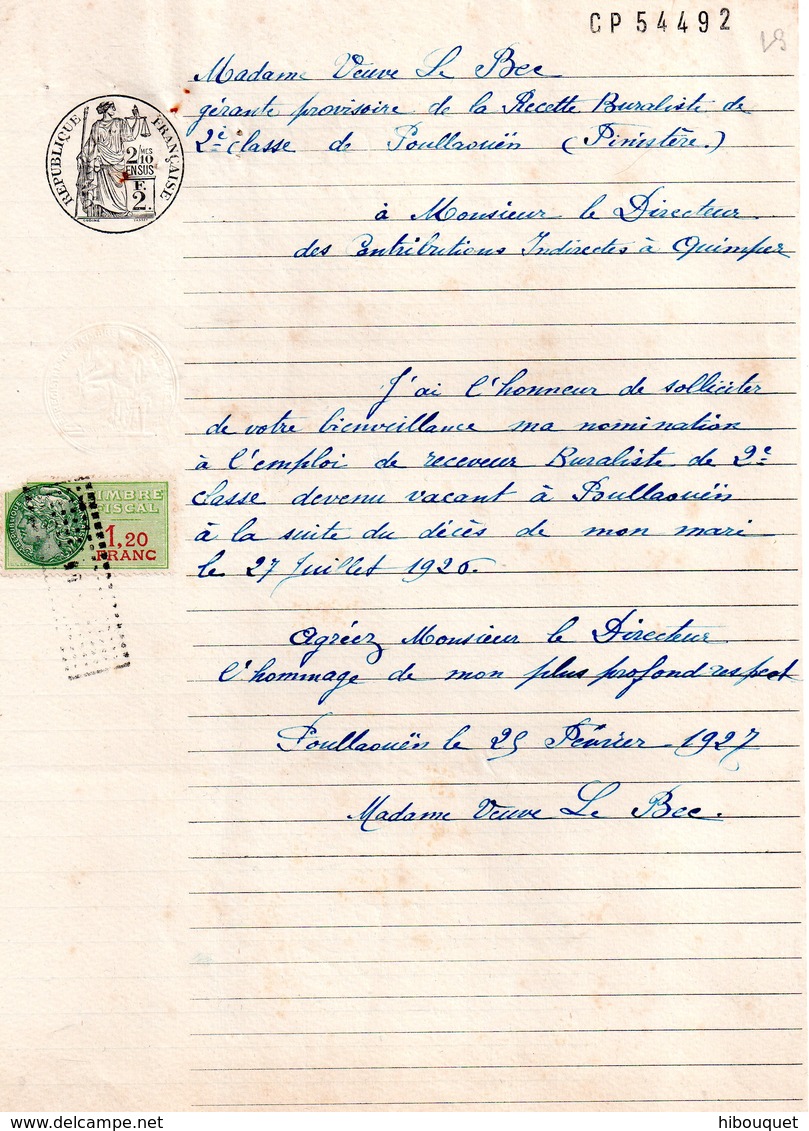 CP 54492
Madame Veuve Le Bec
gérante provisoire de la Recette Buraliste de
2e classe de Poullaouën (Finistère.)
RÉPUBLIQUE FRANÇAISE
2 MES
10
EN SUS
F
2.
à Monsieur le Directeur
des Contributions Indirectes à Quimper
J'ai l'honneur de solliciter
de votre bienveillance ma nomination
à l'emploi de receveur Buraliste de 2e
classe devenu vacant à Poullaouën
à la suite du décès de mon mari
le 27 Juillet 1926.
TIMBRE
FISCAL
1,20
FRANC
Agréez Monsieur le Directeur
l'hommage de mon plus profond respect
Poullaouën le 25 Février 1927
Madame Veuve Le Bec.
hibouquet
delcampe.net